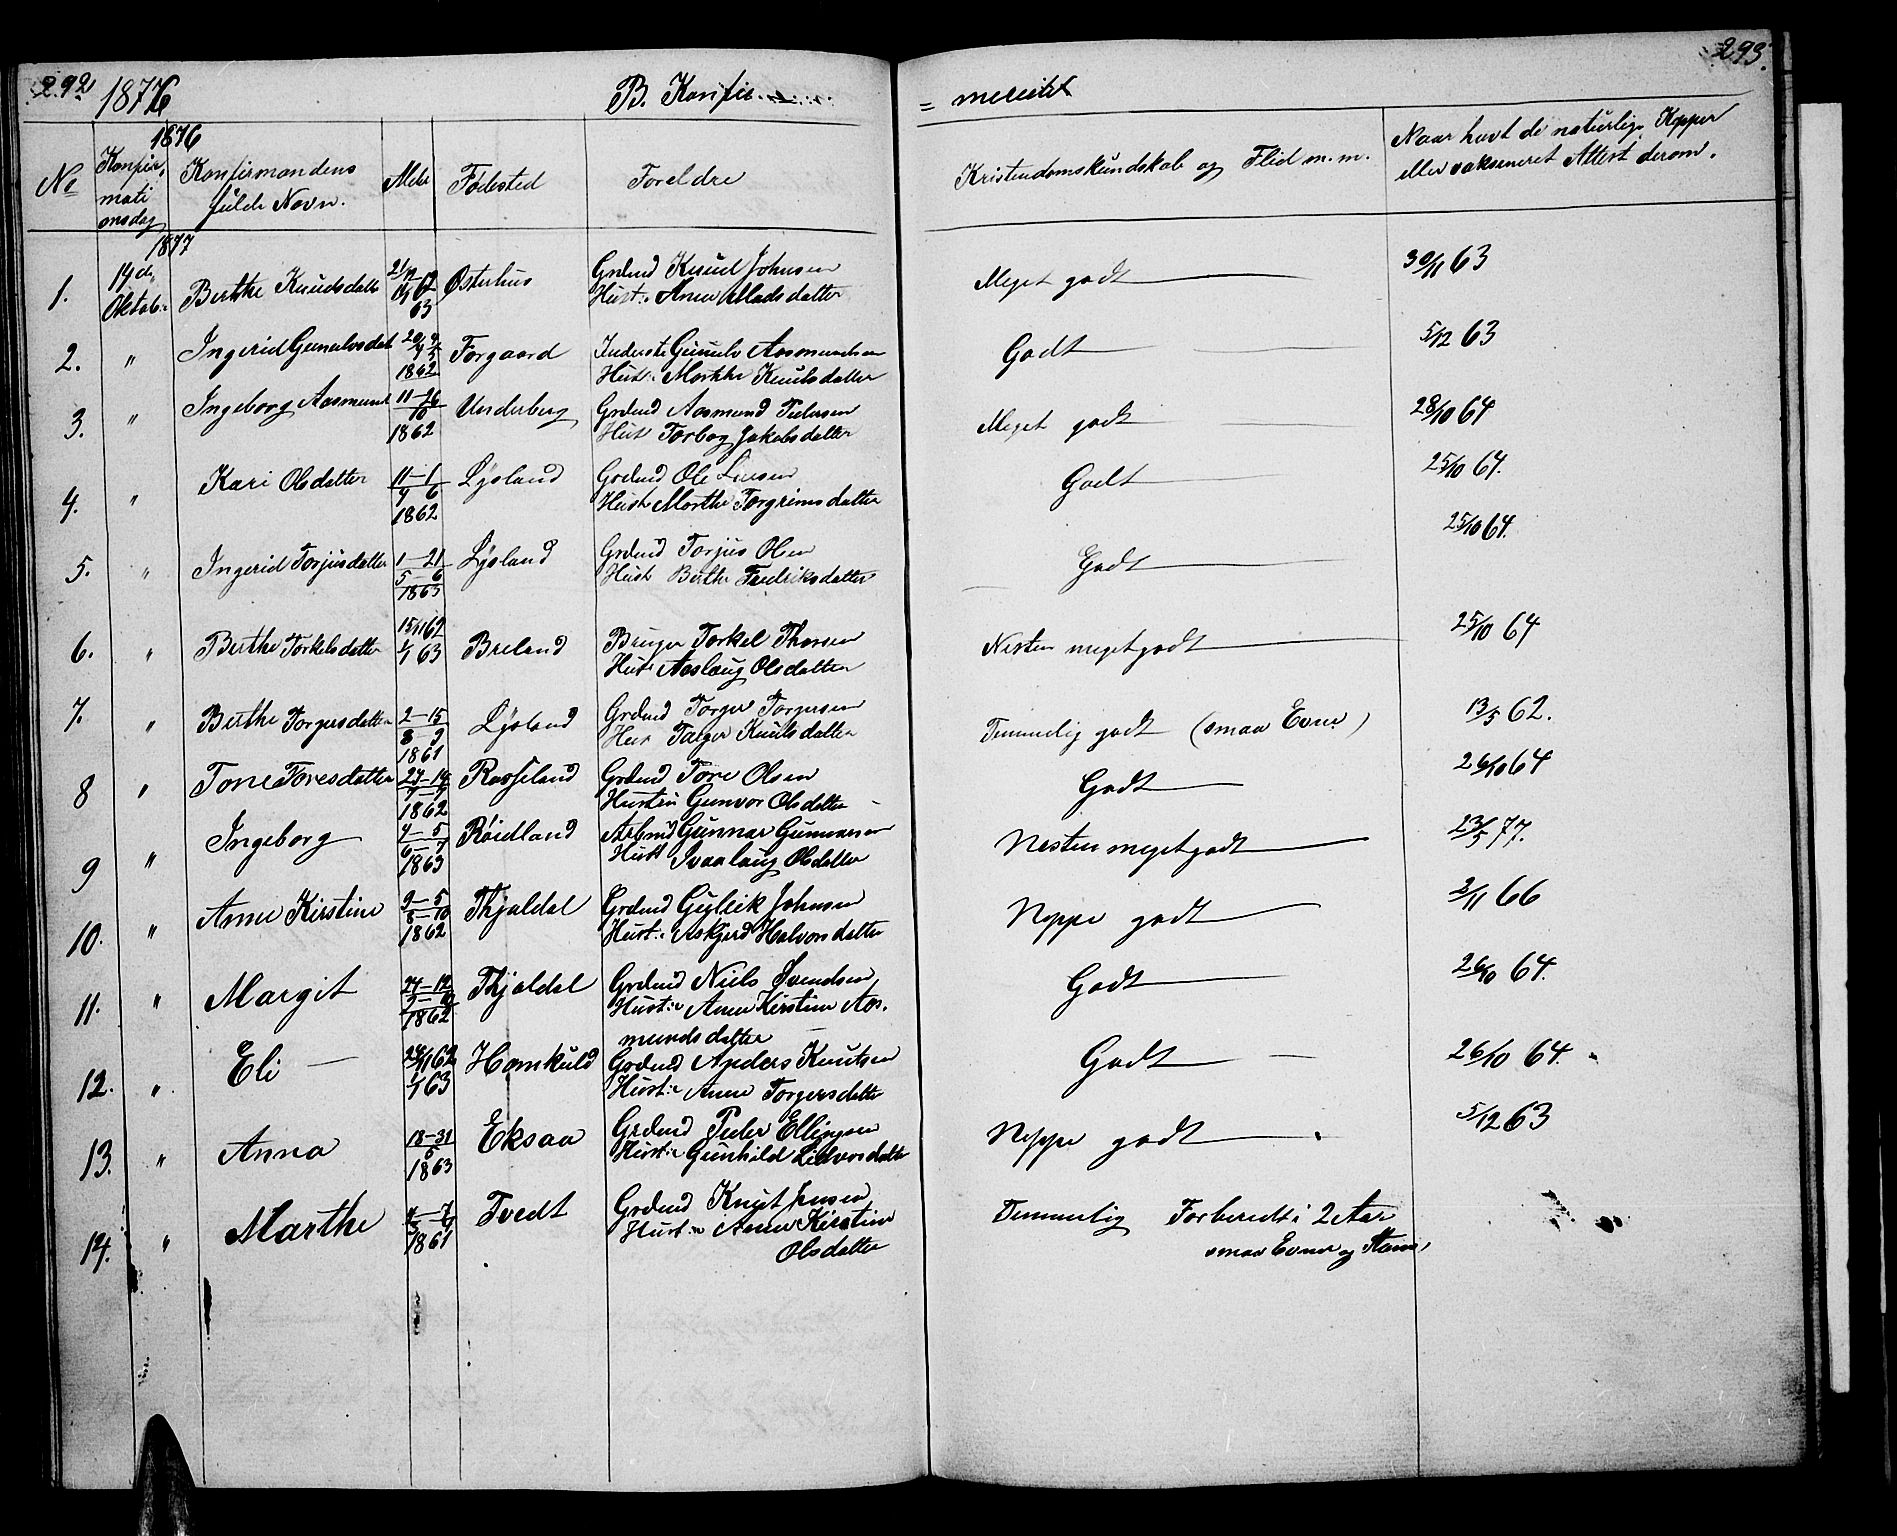 292
293.
1876
B. Konfir
= merede
1876
No
Konfir,
mati
onsdag
Konfirmandens
fulde Navn.
Alder
Fødested
Foreldre
Kristendomskundskab og Flid m.m.
Naar havt de naturlige Kopper
eller vaksineret Attest derom.
1877
1. 14de Oktob: Berthe Knudsdatter 62 63 Østerhus Grdmd Knud Johnsen
Hust: Anne Madsdatter
Meget godt 30/11 63
2. " Ingerid Gunulvsdat 1862 Torgaard Inderste Gunulv Aasmundsen
Hust: Marthe Knutsdatter
Godt 5/12 63
3. " Ingeborg Aasmund 11-26 10 1862 Underberg Grdmd Aasmund Pedersen
Hust Torbog Jakobsdatter
Meget godt 28/10 64
4. " Kari Olsdatter 11-1 4 6 1862 Lysland Grdmd Ole
Hust Marthe Torgrimsdatter
Godt 25/10 64.
5. " Ingerid Torjusdatter 1-21 5-6 1863 Lysland Grdmd Torjus Olsen
Hust Berthe Fredriksdatter
Godt 25/10 64.
6. " Berthe Torkelsdatter 15/11 62 1/1 63 Breland Bruger Torkel Thorsen
Hust Aaslaug Olsdatter
Nesten meget godt 25/10 64
7. " Berthe Torgersdatter 2-15 8 9 1861 Lysland Grdmd Torger Torgersen
Hus Taager Knutsdatter
Temmelig godt (smaa Evner) 13/5 62.
8 " Tone Toresdatter 27-14 1862 Rosseland Grdmd Tore Olsen
Hustru Gunvor Olsdatter
Godt 26/10 64
9 " Ingeborg 4-5 6-7 1863 Røidland Arbmd Gunnar Gunnarsen
Hust Svaalaug Olsdatter
Nesten meget godt 23/5 77.
10. " Anne Kirstine 9-5 8-10 1862 Thjaldal Grdmd Gullik Johnsen
Hust: Askjerd Halvorsdatter
Neppe godt 2/11 66
11. " Margit 24-12 1862 Thjaldal Grdmd Niels Svendsen
Hust:r Anne Kirstine Aas.
mundsdatter
Godt 26/10 64.
12. " Eli 24/11 62 1/1 63 Homkuld Grdmd Anders Knutsen
Hust:r Anne Torgersdatter
Godt 26/10 64.
13. " Anna 18-31 5 1863 Eksaa Grdmd Peder Ellingsen
Hust:r Gunhild Lidvorsdatter
Neppe godt 5/12 63
14. " Marthe 1861 Tvedt Grdmd Knut Jensen
Hust:r Anne Kirstine
Olsdatter
Temmelig Forberedt i 2 Aar
smaa Evner og Stam,